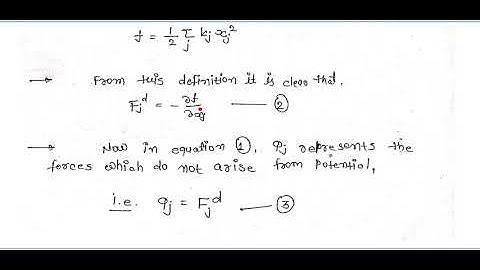 f = 1/2 Σ_j k_j ẋ_j²
→ From this definition it is clear that,
F_j^d = - ∂f/∂ẋ_j — ②
→ Now in equation ①, q_j represents the
forces which do not arise from potential,
i.e. q_j = F_j^d — ③